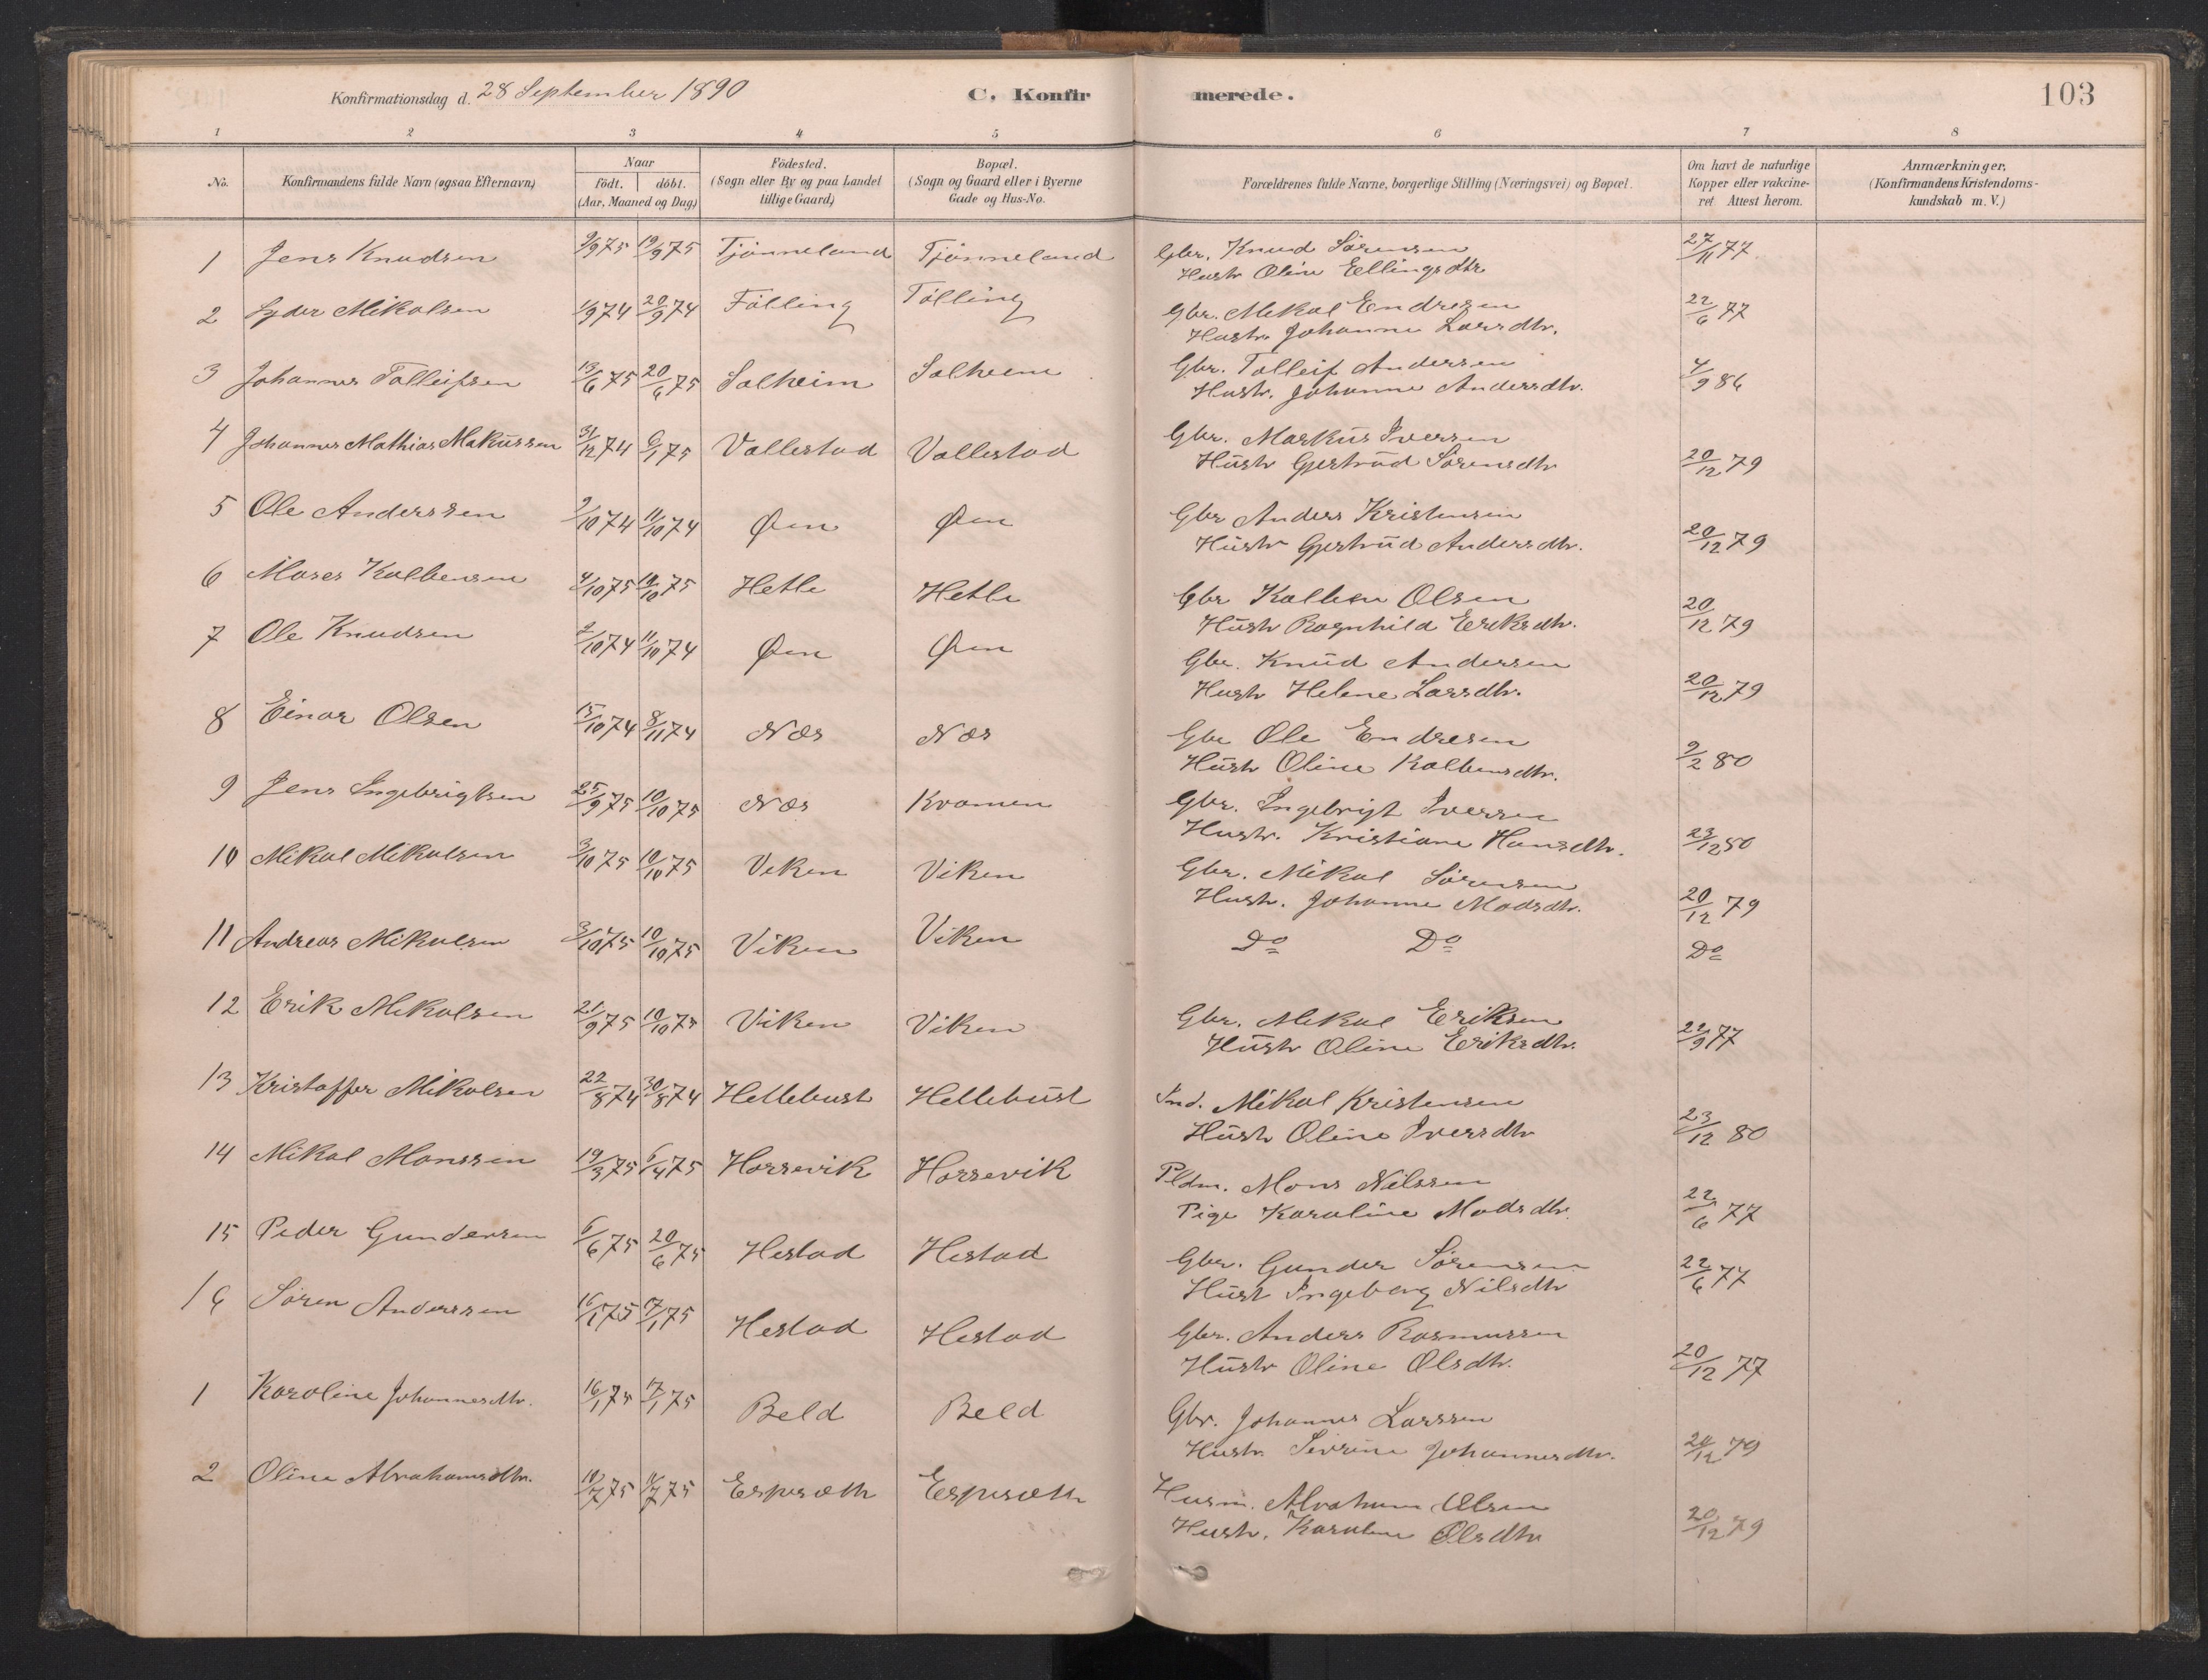 Konfirmationsdag d. 28 September 1890 C. Konfirmerede. 103
1 2 3 4 5 6 7 8
No. Konfirmandens fulde Navn (ogsaa Efternavn) Naar födt. döbt. (Aar, Maaned og Dag) Födested. (Sogn eller By og paa Landet tillige Gaard) Bopæl. (Sogn og Gaard eller i Byerne Gade og Hus-No. Forældrenes fulde Navne, borgerlige Stilling (Næringsvei) og Bopæl. Om havt de naturlige Kopper eller vakcineret Attest herom. Anmærkninger, (Konfirmandens Kristendomskundskab m. V.)
1 Jens Knudsen 9/9 75 19/9 75 Tjønneland Tjønneland Gbr. Knud Sørensen 27/11 77
Hustr Oline Ellingsdtr
2 Lyder Mikalsen 1/9 74 20/9 74 Fölling Tölling Gbr. Mikal Endresen 22/6 77
Hustr. Johanne Larsdtr.
3 Johannes Tolleifsen 13/6 75 20/6 75 Solheim Solheim Gbr. Tolleif Andersen 4/9 86
Hustr. Johanne Andersdtr.
4 Johannes Mathias Makussen 31/12 74 6/1 75 Vallestad Vallestad Gbr. Markus Iversen
Hustr Gjertrud Sørensdtr 20/12 79
5 Ole Anderssen 2/10 74 11/10 74 Øen Øen Gbr Anders Kristensen
Hustr Gjertrud Andersdtr. 20/12 79
6 Moses Kolbensen 4/10 75 10/10 75 Hetle Hetle Gbr Kolben Olsen 20/12 79
Hustr Ragnhild Eriksdtr.
7 Ole Knudsen 2/10 74 11/10 74 Øen Øen Gbr. Knud Andersen
Hustr Helene Larsdtr. 20/12 79
8 Einar Olsen 15/10 74 8/11 74 Næs Næs Gbr Ole Endresen
Hustr Oline Kolbensdtr. 9/2 80
9 Jens Ingebrigtsen 25/9 75 10/10 75 Næs Kvamen Gbr. Ingebrigt Iversen
Hustr. Kristiane Hansdtr. 23/12 80
10 Mikal Mikalsen 3/10 75 10/10 75 Viken Viken Gbr. Mikal Sørensen
Hustr. Johanne Madsdtr. 20/12 79
11 Andreas Mikalsen 3/10 75 10/10 75 Viken Viken Do Do Do
12 Erik Mikalsen 21/9 75 10/10 75 Viken Viken Gbr. Mikal Eriksen 22/9 77
Hustr Oline Eriksdtr.
13 Kristoffer Mikalsen 22/8 74 30/8 74 Hellebust Hellebust Ind. Mikal Kristensen
Hustr Oline Iversdtr 23/12 80
14 Mikal Monssen 19/3 75 6/4 75 Horsevik Horsevik Pldm. Mons Nilssen
Pige Karoline Madsdtr. 22/6 77
15 Peder Gundersen 6/6 75 20/6 75 Hestad Hestad Gbr. Gunder Sørensen 22/6 77
Hustr Ingeborg Nilsdtr
16 Søren Anderssen 16/1 75 17/1 75 Hestad Hestad Gbr. Anders Rasmussen
Hustr Oline Olsdtr. 20/12 77
1 Karoline Johannesdtr. 16/1 75 17/1 75 Beld Beld Gbr. Johannes Larssen
Hustr. Sivrine Johannesdtr. 20/12 79
2 Oline Abrahamsdtr. 10/7 75 11/7 75 Espesæth Espesæth Husm. Abraham Olsen
Hustr. Karoline Olsdtr 20/12 79